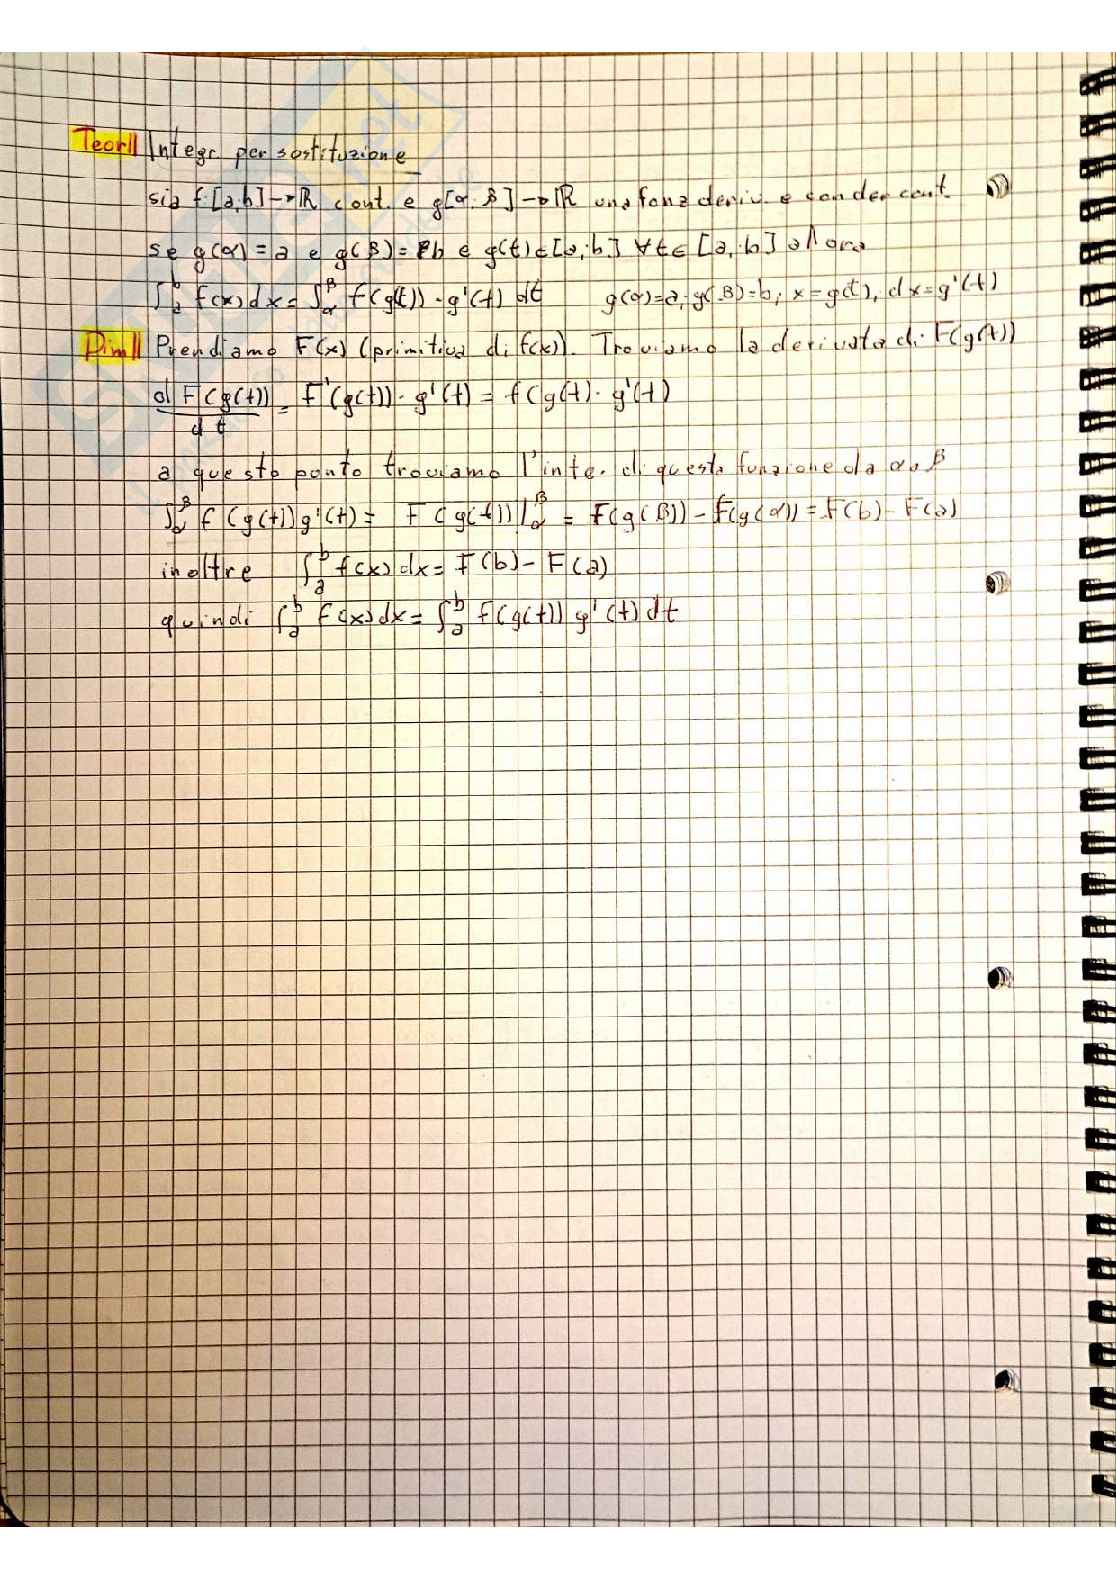 Teor|| Integr per sostituzione
sia f:[a,b]→ℝ cont. e g[α;β]→ℝ una fonz deriv. e con der cont.
se g(α)=a e g(β)=b e g(t)∈[a;b] ∀t∈[a;b] allora
∫ₐᵇ f(x)dx=∫_α^β f(g(t))·g'(t) dt g(α)=a; g(β)=b; x=g(t), dx=g'(t)
Dim|| Prendiamo F(x) (primitiva di f(x)). Troviamo la derivata di F(g(t))
d F(g(t))/dt = F'(g(t))·g'(t)=f(g(t)·g'(t)
a questo punto troviamo l'inte. di questa funzione da α a β
∫_α^β f(g(t))g'(t)= F(g(t))|_α^β = F(g(β))-F(g(α))=F(b)-F(a)
inoltre ∫ₐᵇ f(x)dx=F(b)-F(a)
quindi ∫ₐᵇ f(x)dx=∫ₐᵇ f(g(t)) g'(t)dt